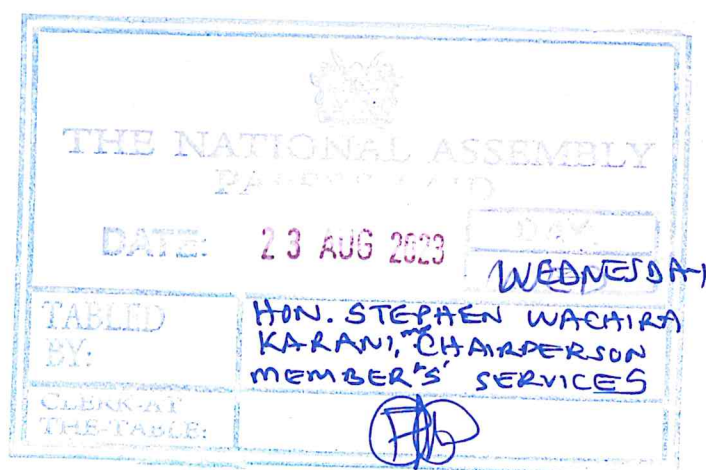 THE NATIONAL ASSEMBLY
DATE: 23 AUG 2023
DAY.
WEDNESDAY
TABLED BY:
HON. STEPHEN WACHIRA
KARANI, MP CHAIRPERSON
MEMBER'S SERVICES
CLERK-AT
THE-TABLE: